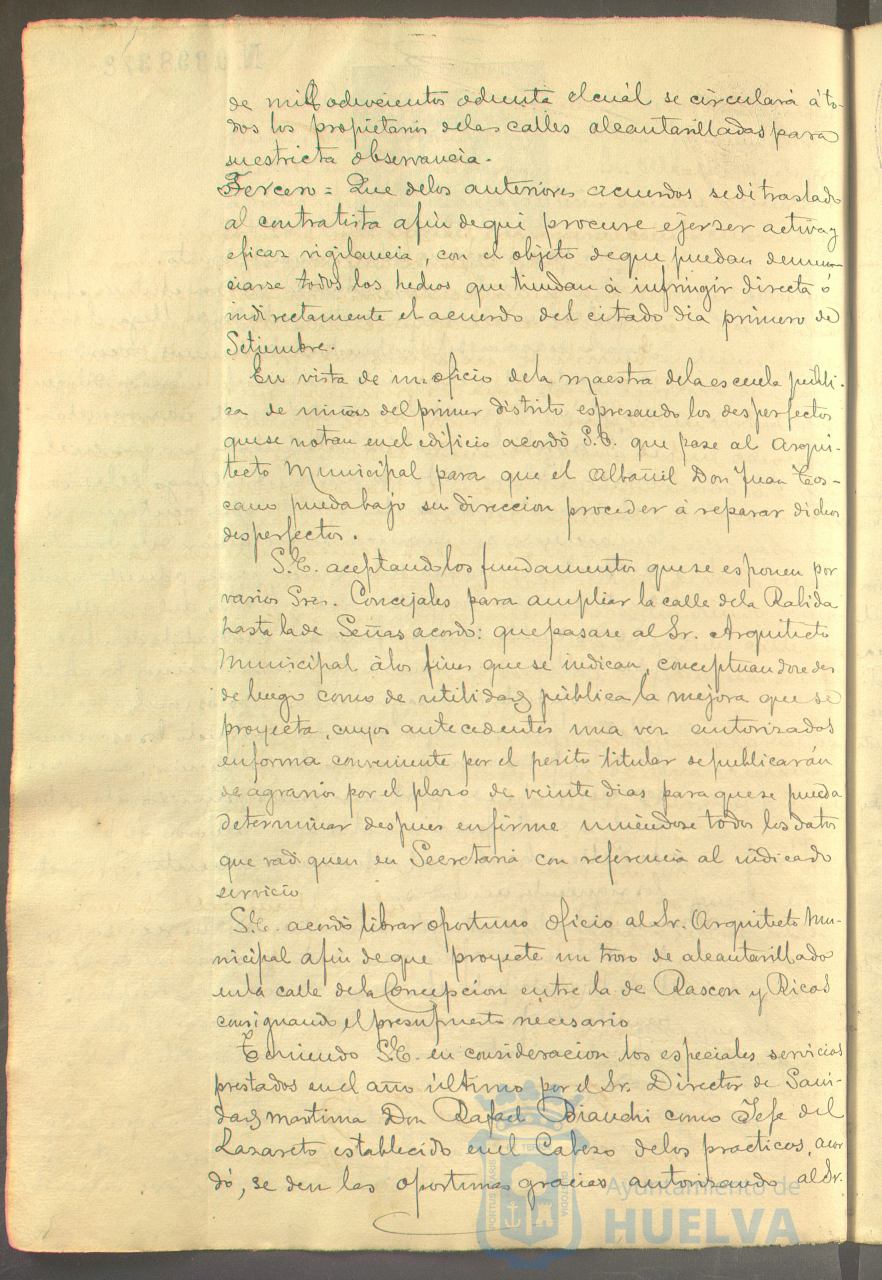 de mil ochocientos ochenta el cuál se circulará á to-
dos los propietarios de las calles alcantarilladas para
su estricta observancia.
Tercero = Que de los anteriores acuerdos se dé traslado
al contratista afin de qui procure ejerser activa y
eficaz vigilancia, con el objeto de que puedan denun-
ciarse todos los hechos que tiendan á infringir directa ó
indirectamente el acuerdo del citado dia primero de
Setiembre.
En vista de un oficio de la maestra de la escuela públi-
ca de niñas del primer distrito espresando los desperfectos
que se notan en el edificio acordó S.E. que pase al Arqui-
tecto Municipal para que el Albañil Don Juan Tos-
cano pueda bajo su direccion proceder á reparar dichos
desperfectos.
S.E. aceptando los fundamentos que se esponen por
varios Sres. Concejales para ampliar la calle de la Rabida
hasta la de Señas acordó: que pasase al Sr. Arquitecto
Municipal á los fines que se indican, conceptuandose des
de luego como de utilidad pública la mejora que se
proyecta, cuyos antecedentes una vez autorizados
en forma conveniente por el perito titular se publicarán
de agravios por el plazo de veinte dias para que se pueda
determinar despues en firme uniéndose todos los datos
que radiquen en Secretaria con referencia al indicado
servicio
S.E. acordó librar oportuno oficio al Sr. Arquitecto Mu-
nicipal afin de que proyecte un trozo de alcantarillado
en la calle de la Concepcion entre la de Rascon y Ricos
consignando el presupuesto necesario
Teniendo S.E. en consideracion los especiales servicios
prestados en el año último por el Sr. Director de Sani-
dad maritima Don Rafael Bianchi como Jefe del
Lazareto establecido en el Cabezo de los practicos, acor
dó, se den las oportunas gracias autorizando al Sr.
Ayuntamiento de
HUELVA